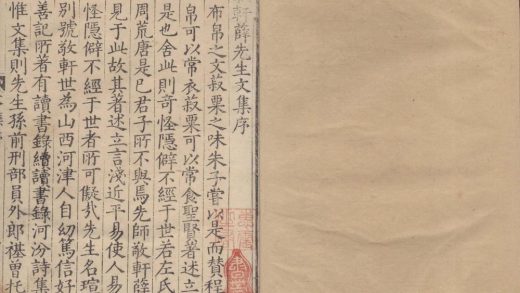 軒薛先生文集序
布帛之文菽粟之味朱子嘗以是而贊程
帛可以常衣菽粟可以常食聖賢著述立
是也舍此則奇怪隱僻不經于世若左氏
周荒唐是已君子所不與焉先師敬軒薛
見于此故其著述立言淺近平易使人易
怪隱僻不經于世者所可儗哉先生名瑄
別號敬軒世為山西河津人自幼篤信好
善記所著有讀書錄續讀書錄河汾詩集
惟文集則先生孫前刑部員外郎禥曾托